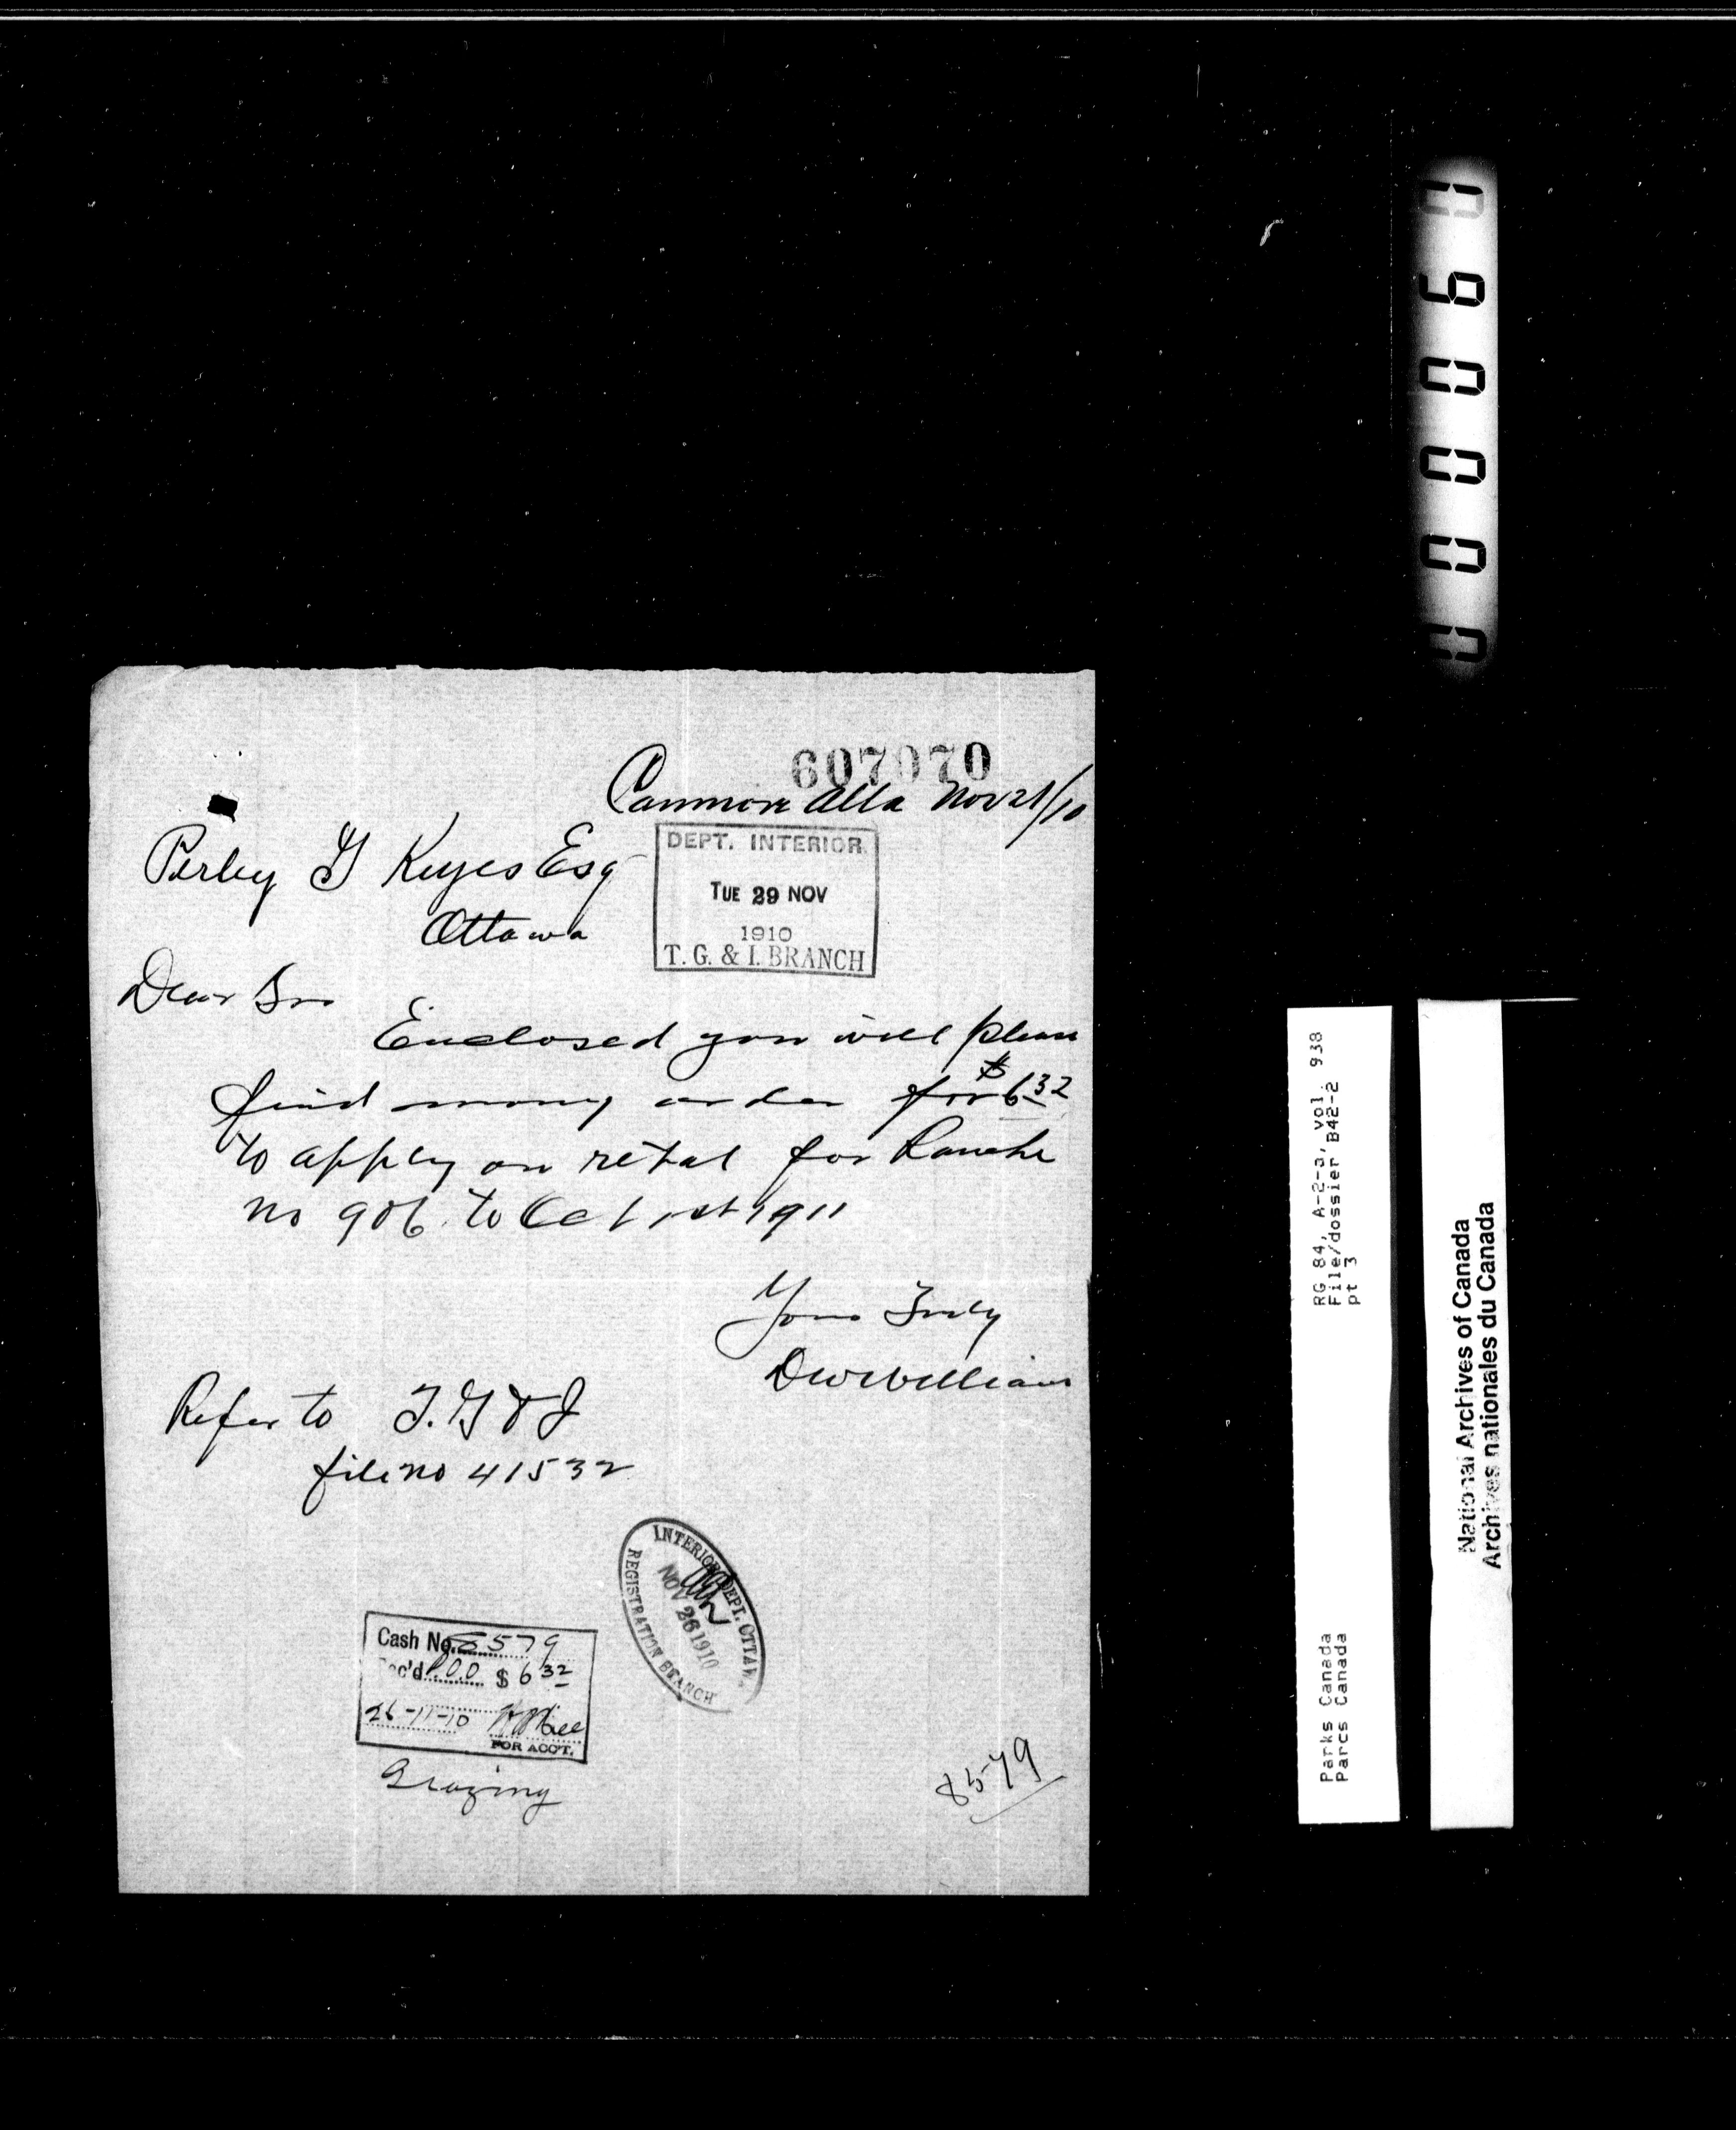 607070
Canmore Alta Nov 21/10
Perley G Keyes Esq
Ottawa
DEPT. INTERIOR
TUE 29 NOV
1910
T. G. & I. BRANCH
Dear Sir
Enclosed you will please
find money order for $6.32
to apply on retal for Ranche
no 906. to Oct 1st 1911
Yours Truly
D W Williams
Refer to T. G & I
file no 41532
INTERIOR DEPT. OTTAWA
NOV 26 1910
REGISTRATION BRANCH
Cash No. 8579
Rec'd P.O.O $ 6 32
26-11-10
FOR ACCT.
Grazing
8579
000060
RG 84, A-2-a, vol. 938
File/dossier B42-2
pt 3
Parks Canada
Parcs Canada
National Archives of Canada
Archives nationales du Canada